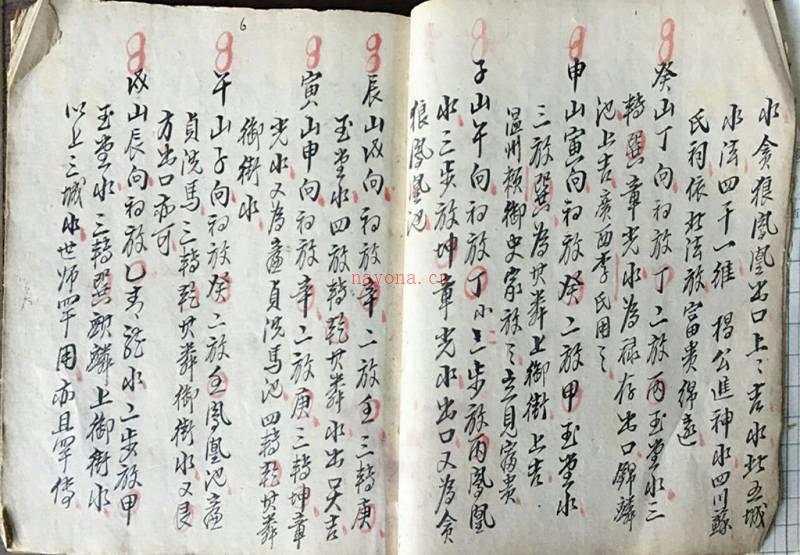 水貪狼鳳凰出口上上吉水城五城
水法四干一維 楊公進神水四川蘇
氏祠依此法放富貴綿遠
癸山丁向初放丁二放丙玉堂水三
轉巽章光水為祿存出口錦麟
池上吉廣西李氏用之
申山寅向初放癸二放甲玉堂水
三放巽為貫班上御街上吉
温州賴御史家放之立見富貴
子山午向初放丁小三步放丙鳳凰
水三步放坤章光水出口又為貪
狼鳳凰池
6
辰山戌向初放辛二放壬三轉庚
玉堂水四放轉乾 水出口大吉
寅山申向初放辛二放庚三轉坤章
光水又為廉貞洗馬池四轉乾
御街水
午山子向初放癸二放壬鳳凰池廉
貞洗馬三轉乾 御街水又艮
方出口亦可
戌山辰向初放乙青龍水二步放甲
玉堂水三轉巽 麟上御街水
以上三城水世師罕用亦且罕傳
nayona.cn